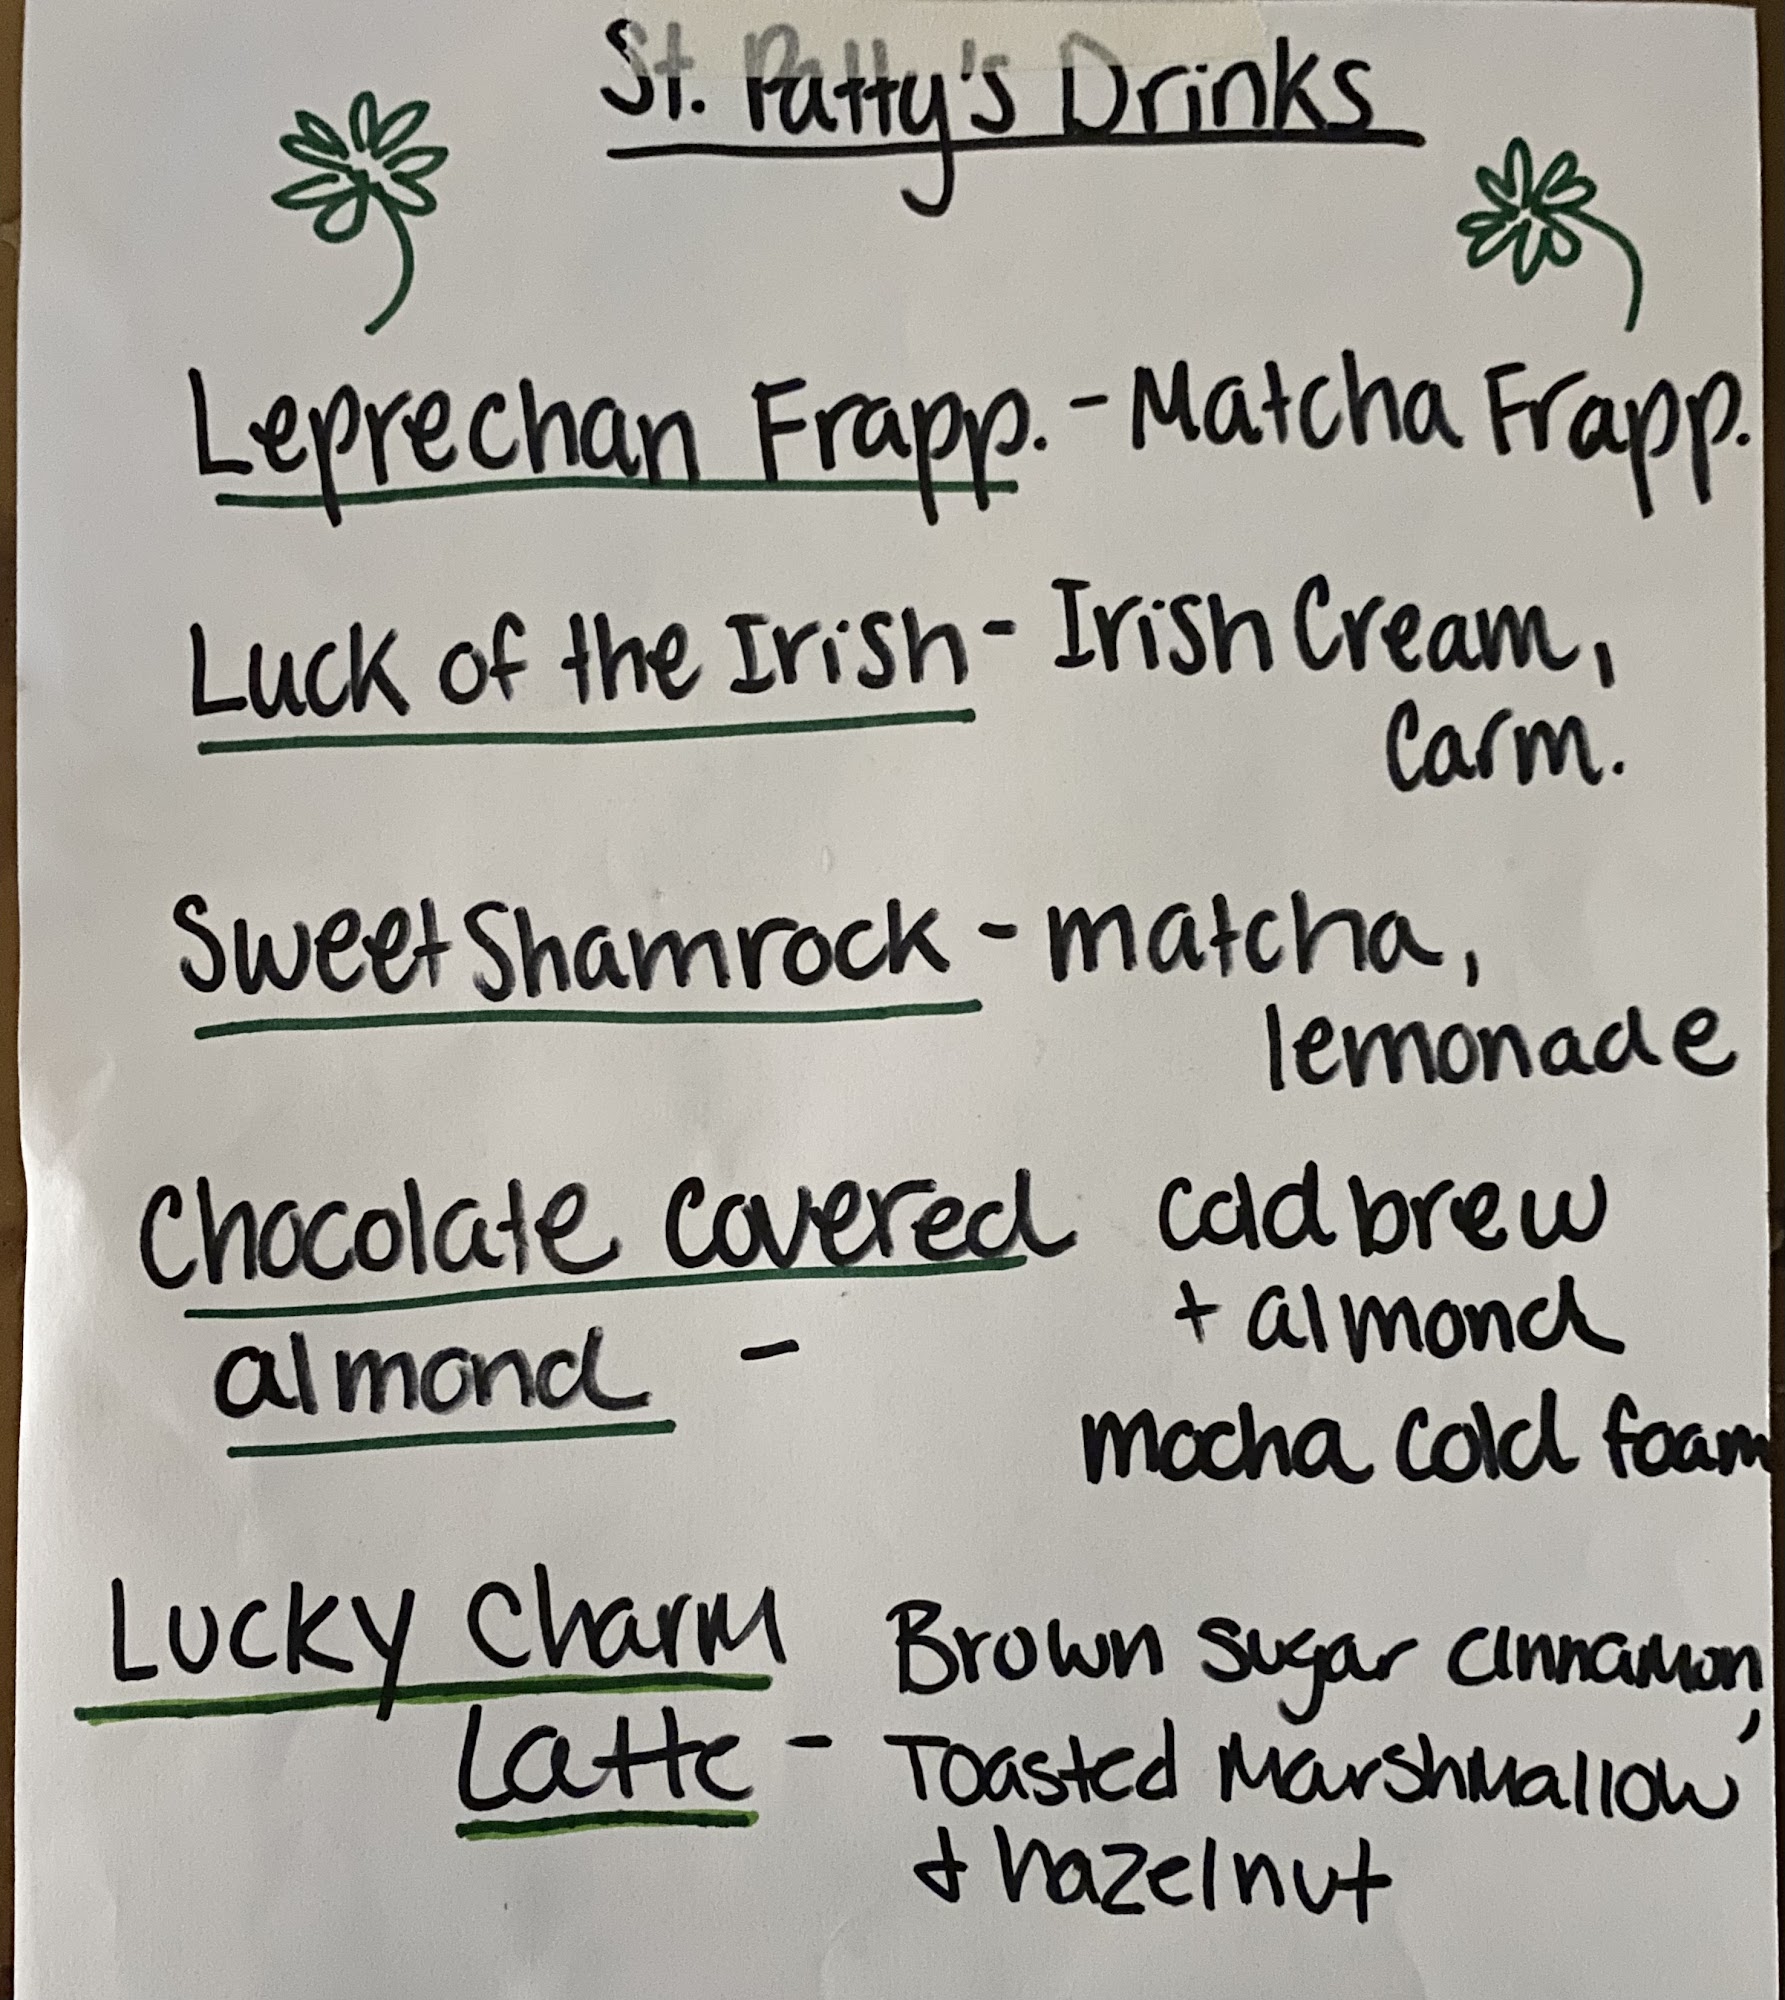 St. Patty's Drinks
Leprechan Frapp. - Matcha Frapp.
Luck of the Irish - Irish Cream,
Carm.
Sweet Shamrock - matcha,
lemonade
Chocolate Covered cold brew
+ almond
almond -
mocha cold foam
Lucky Charm Brown sugar cinnamon,
Latte - Toasted Marshmallow
+ hazelnut